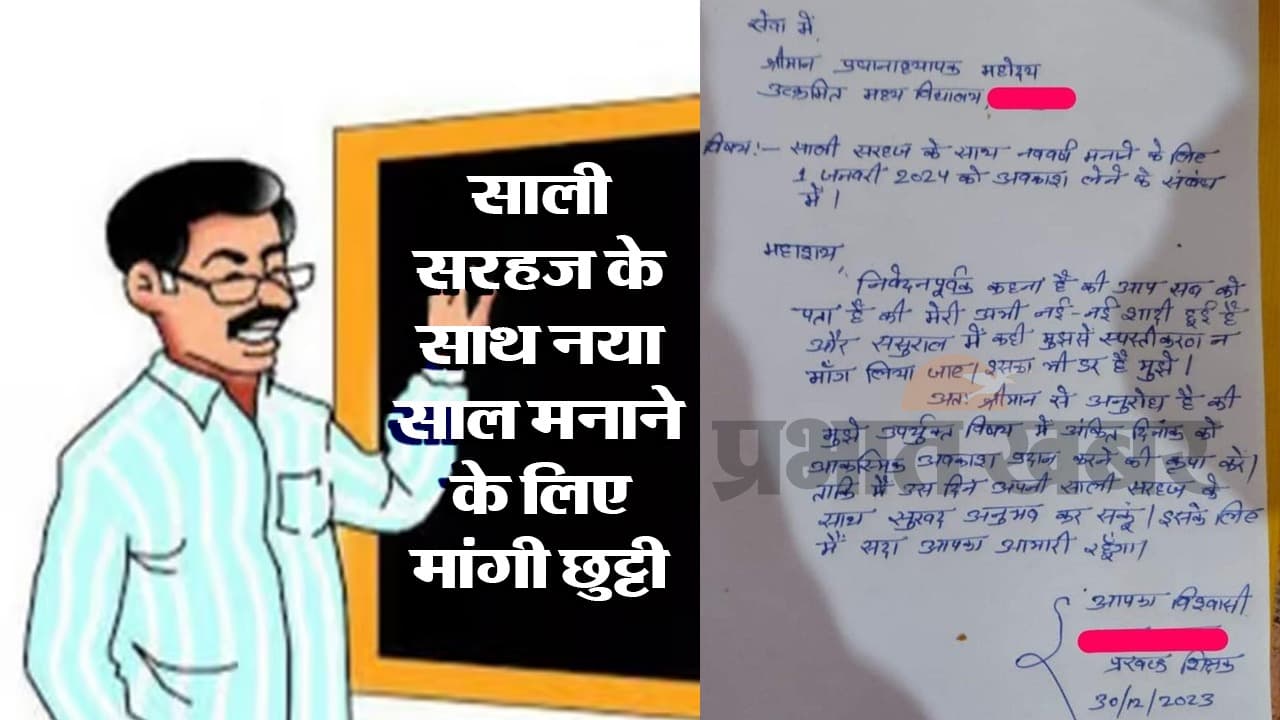 साली
सरहज के
साथ नया
साल मनाने
के लिए
मांगी छुट्टी
सेवा में,
श्रीमान प्रधानाध्यापक महोदय
उत्क्रमित मध्य विद्यालय,
विषय:- साली सरहज के साथ नववर्ष मनाने के लिए
1 जनवरी 2024 को अवकाश लेने के संबंध
में।
महाशय,
निवेदनपूर्वक कहना है की आप सब को
पता है की मेरी अभी नई-नई शादी हुई है
और ससुराल में कही मुझसे स्पस्तीकरण न
माँग लिया जाए। इसका भी डर है मुझे।
अतः श्रीमान से अनुरोध है की
मुझे उपर्युक्त विषय में अंकित दिनांक को
आकस्मिक अवकाश प्रदान करने की कृपा करे।
ताकि मैं उस दिन अपनी साली सरहज के
साथ सुखद अनुभव कर सकूं। इसके लिए
मैं सदा आपका आभारी रहूँगा।
आपका विश्वासी
प्रखण्ड शिक्षक
30/12/2023
प्रभात खबर